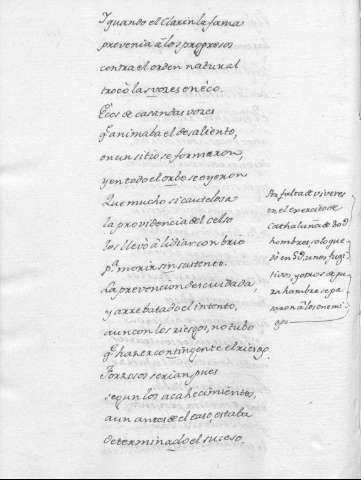 Y quando el Clarin la fama
prevenia â los progresos
contra el orden natural
trocò las vozes en èco.
Ecos de casandas vozes
q̃ animaba el desaliento,
en un sitio se formaron,
y en todo el orbe se oyeron
Que mucho si cautelosa
la providencia del celso
los llevò à lidiar con brio
pa. morir sin sustento.
La prevencion descuidada,
y arrebatado el intento,
aun con los riesgos, no tubo
q̃ hazer contingente el riesgo.
Forzosos serian pues
segun los acahecimientos,
aun antes de el caso, estaba
determinado el suceso.
Por falta de viveres
en el exercito de
Cathaluña de
hombres, solo que
dò en unos, fugi
tivos, y otros de pu
ra hambre se pa
saron â los enemi
gos